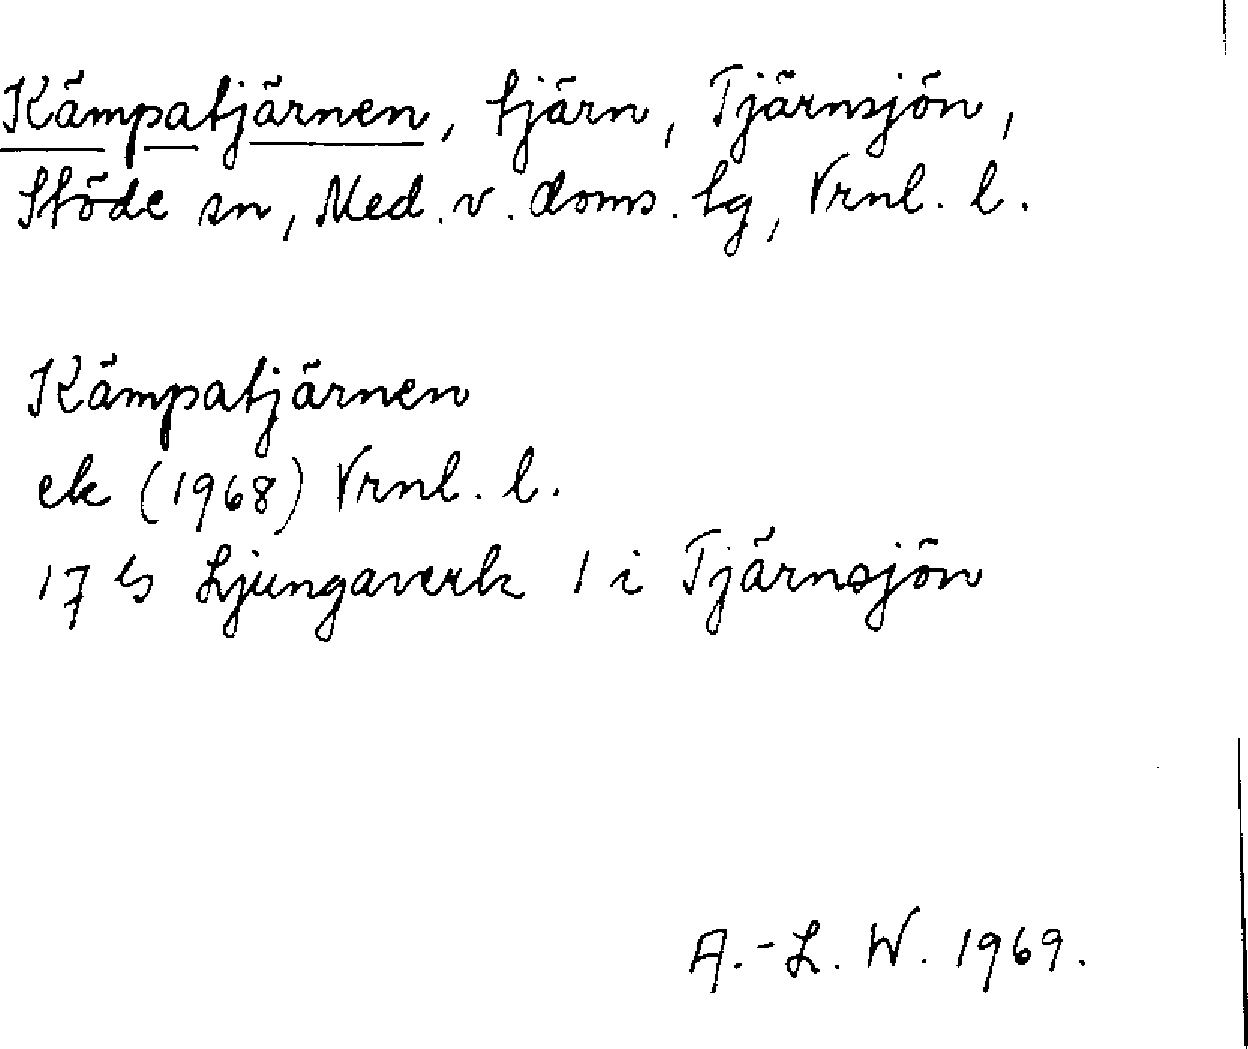 Kämpatjärnen, tjärn, Tjärnsjön,
Stöde sn, Med. v. doms. lg, Vrnl. l.
Kämpatjärnen
ek (1968) Vrnl. l.
17 G Ljungaverk 1 i Tjärnsjön
A.-L. W. 1969.